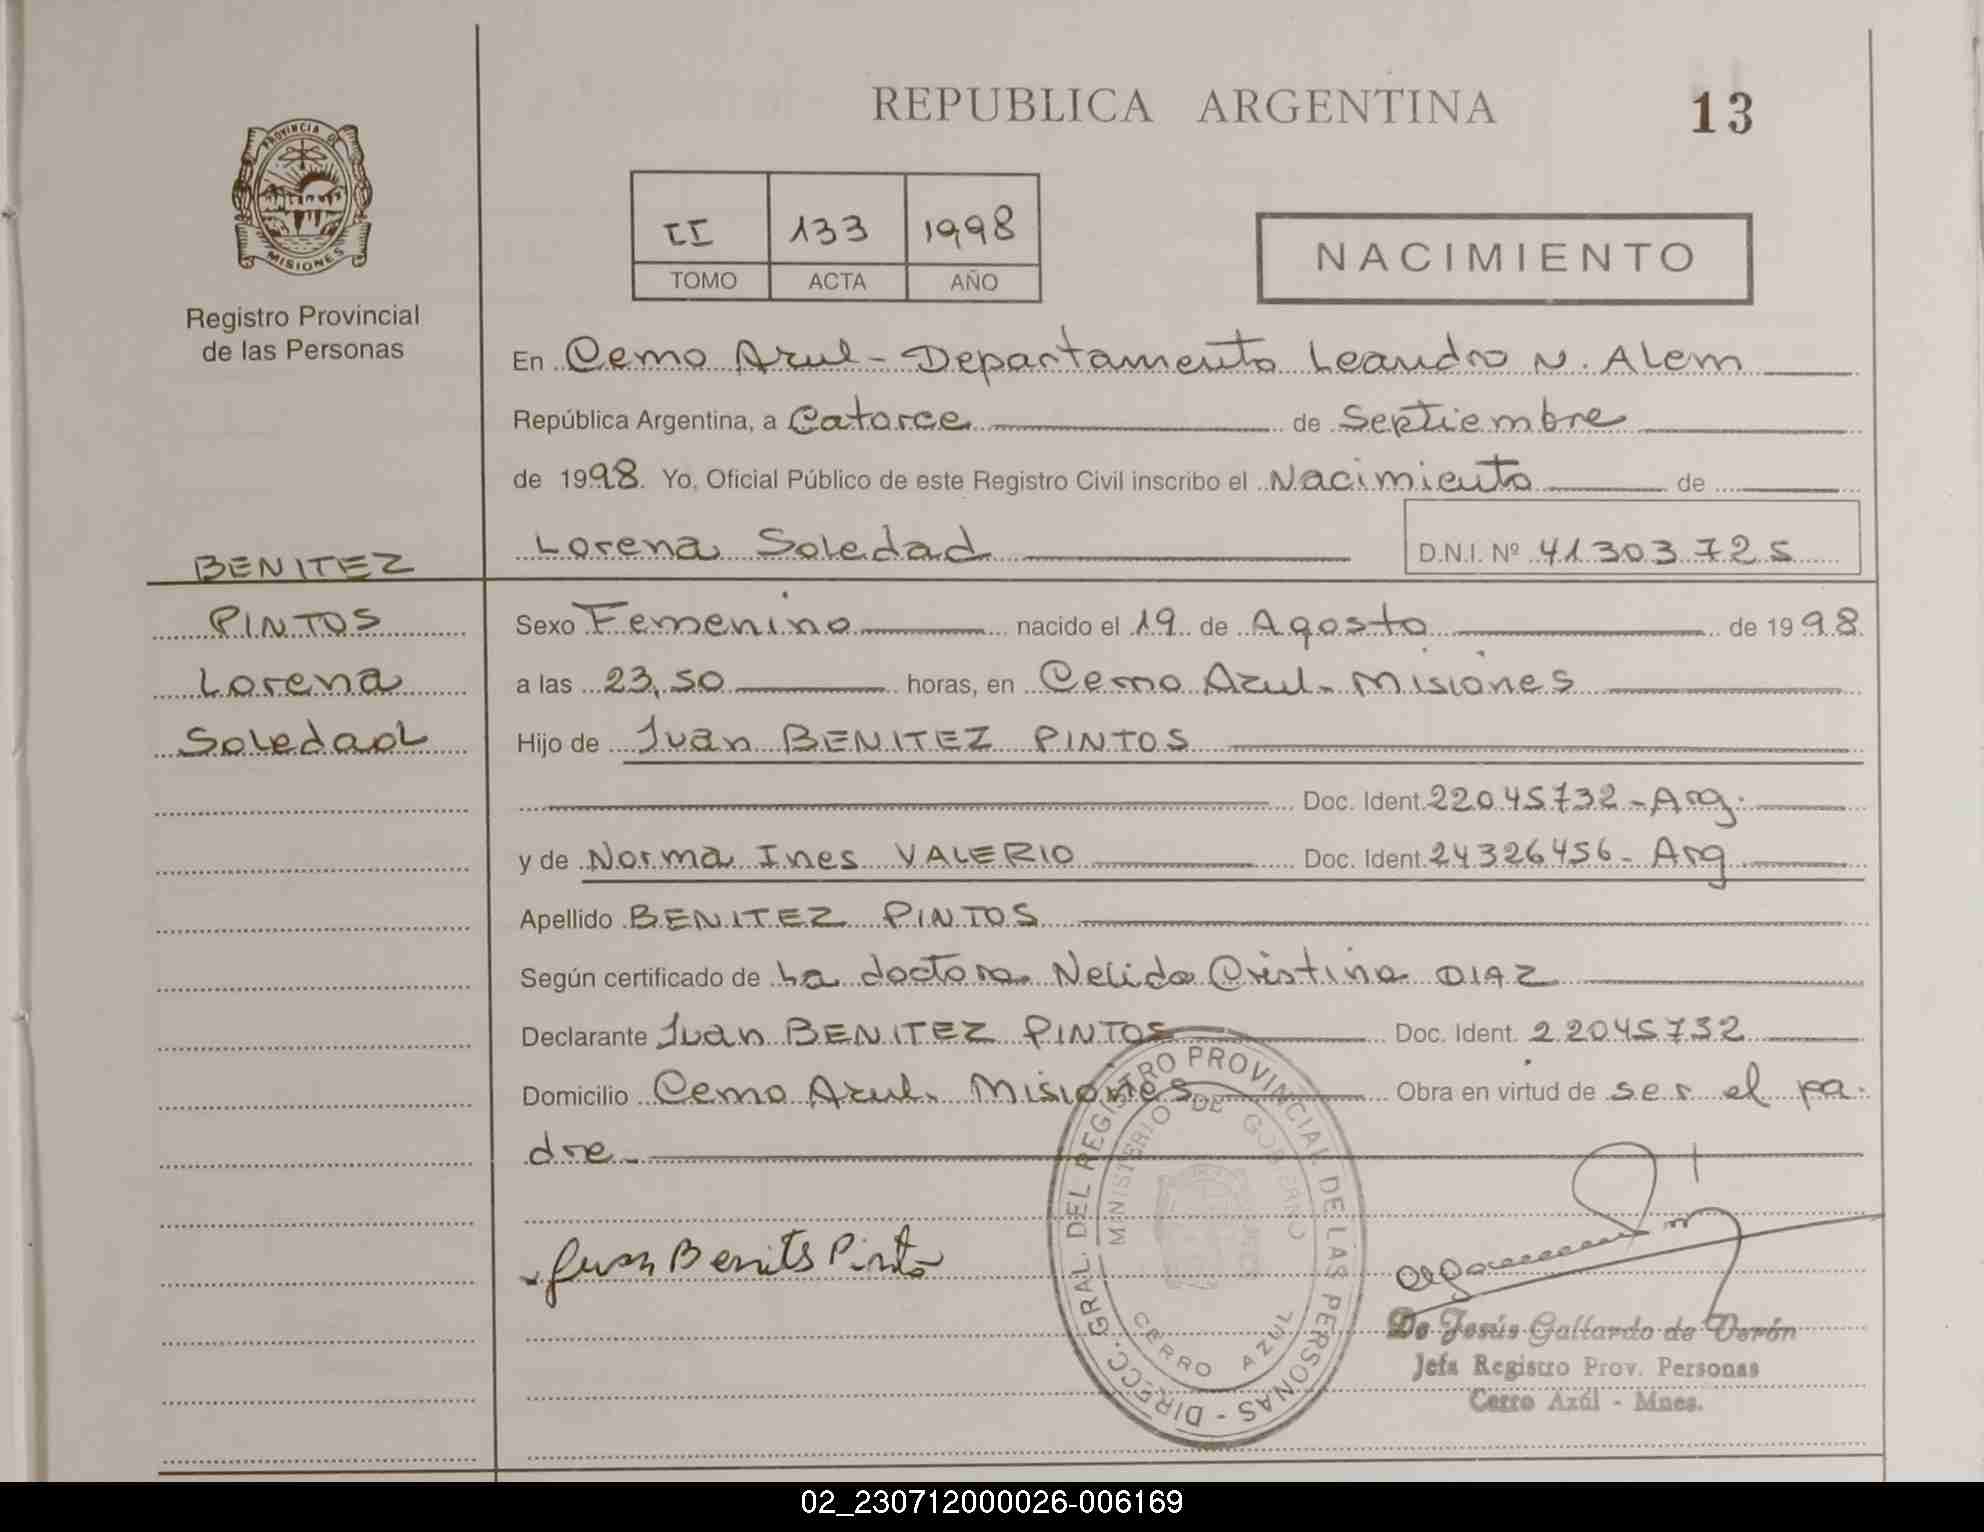 REPUBLICA ARGENTINA
13
PROVINCIA DE
MISIONES
Registro Provincial
de las Personas
II 133 1998
TOMO ACTA AÑO
NACIMIENTO
En Cerro Azul - Departamento Leandro N. Alem
República Argentina, a Catorce de Septiembre
de 1998. Yo, Oficial Público de este Registro Civil inscribo el Nacimiento de
Lorena Soledad D.N.I. Nº 41303725
BENITEZ
PINTOS
Lorena
Soledad
Sexo Femenino nacido el 19 de Agosto de 1998
a las 23,50 horas, en Cerro Azul. Misiones
Hijo de Juan BENITEZ PINTOS
Doc. Ident. 22045732 - Arg.
y de Norma Ines VALERIO Doc. Ident. 24326456 - Arg
Apellido BENITEZ PINTOS
Según certificado de La doctora Nelida Cristina DIAZ
Declarante Juan BENITEZ PINTOS Doc. Ident. 22045732
Domicilio Cerro Azul. Misiones Obra en virtud de ser el pa-
dre -
Juan Benits Pinto
DIRECC. GRAL. DEL REGISTRO PROVINCIAL DE LAS PERSONAS -
MINISTERIO DE GOBIERNO
CERRO AZUL
De Jesús Gallardo de Verón
Jefa Registro Prov. Personas
Cerro Azúl - Mnes.
02_230712000026-006169